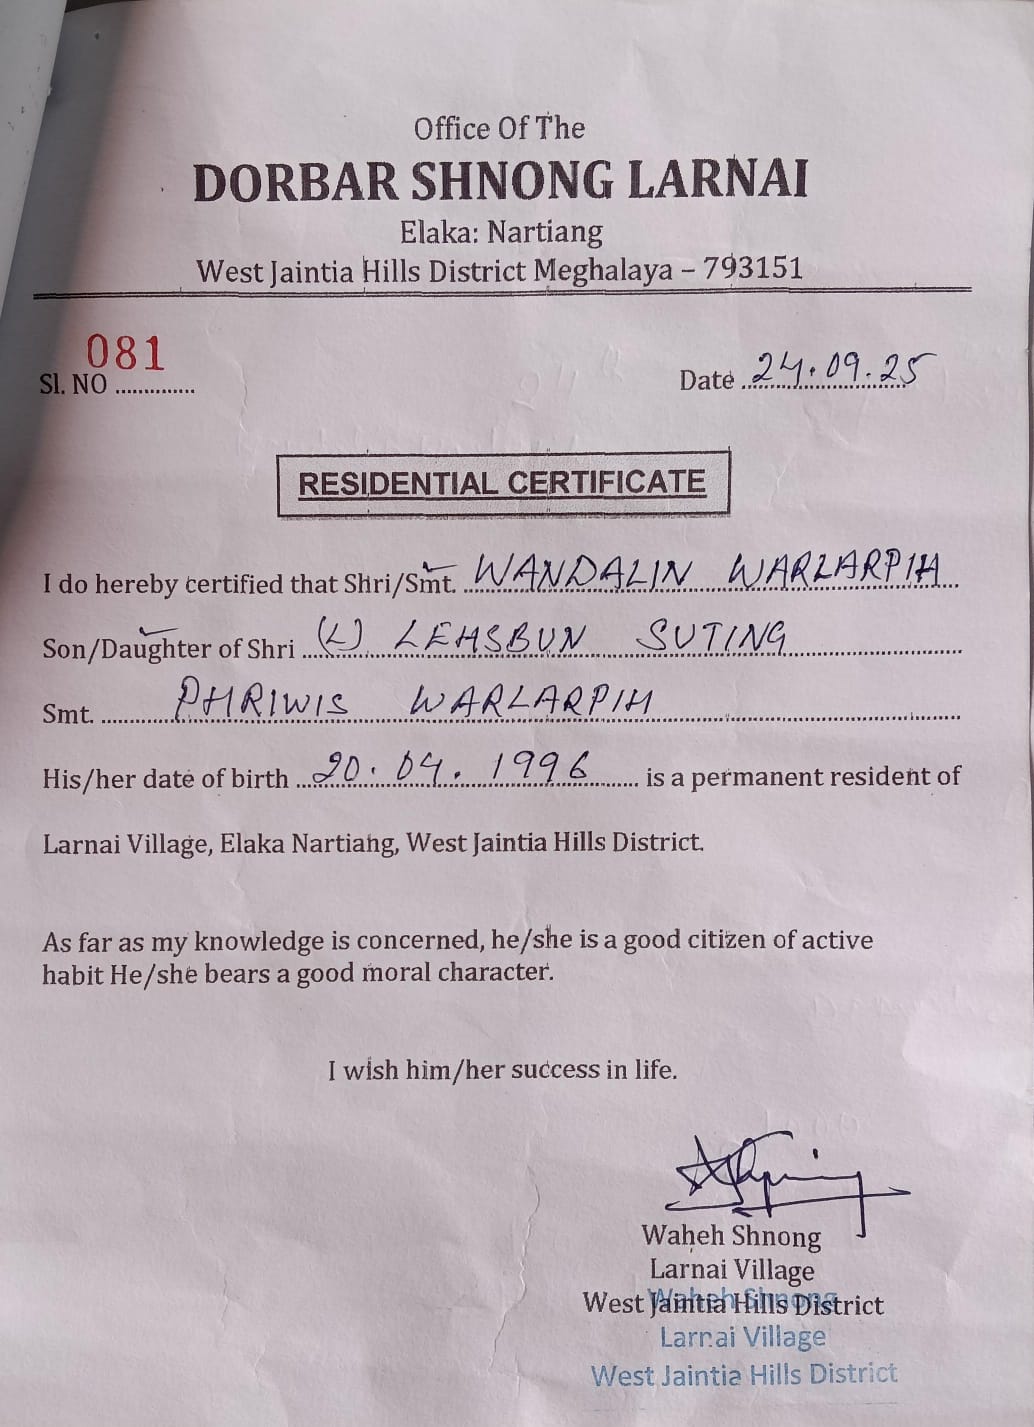 Office Of The
DORBAR SHNONG LARNAI
Elaka: Nartiang
West Jaintia Hills District Meghalaya – 793151
081
Sl. NO ..............
Date 24.09.25
RESIDENTIAL CERTIFICATE
I do hereby certified that Shri/Smt. WANDALIN WARLARPIH
Son/Daughter of Shri (L) LEHSBUN SUTING
Smt. PHRIWIS WARLARPIH
His/her date of birth 20.04.1996 is a permanent resident of
Larnai Village, Elaka Nartiang, West Jaintia Hills District.
As far as my knowledge is concerned, he/she is a good citizen of active
habit He/she bears a good moral character.
I wish him/her success in life.
Waheh Shnong
Larnai Village
West Jaintia Hills District
Waheh Shnong
Larnai Village
West Jaintia Hills District